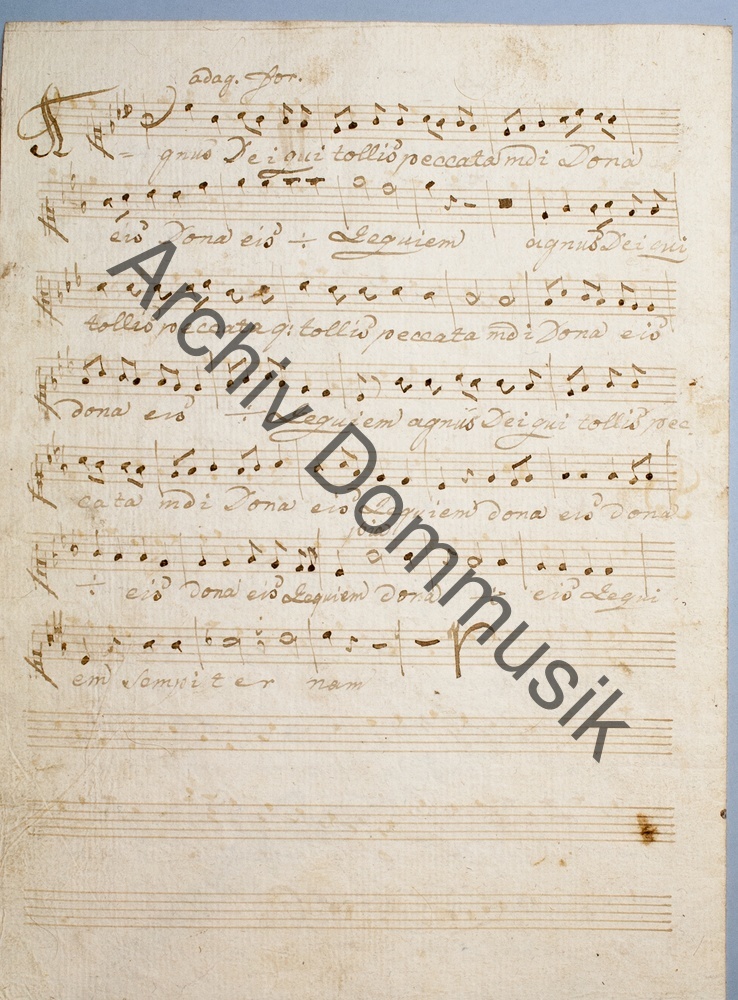 adag. for.
A= gnus Dei qui tollis peccata mdi Dona
eis Dona eis ÷ Requiem agnus Dei qui
tollis peccata q: tollis peccata mdi Dona eis
dona eis ÷ Requiem agnus Dei qui tollis pec
cata mdi Dona eis Requiem dona eis dona
÷ eis dona eis Requiem dona ÷ eis Requi
em sempiter nam
Archiv Dommusik